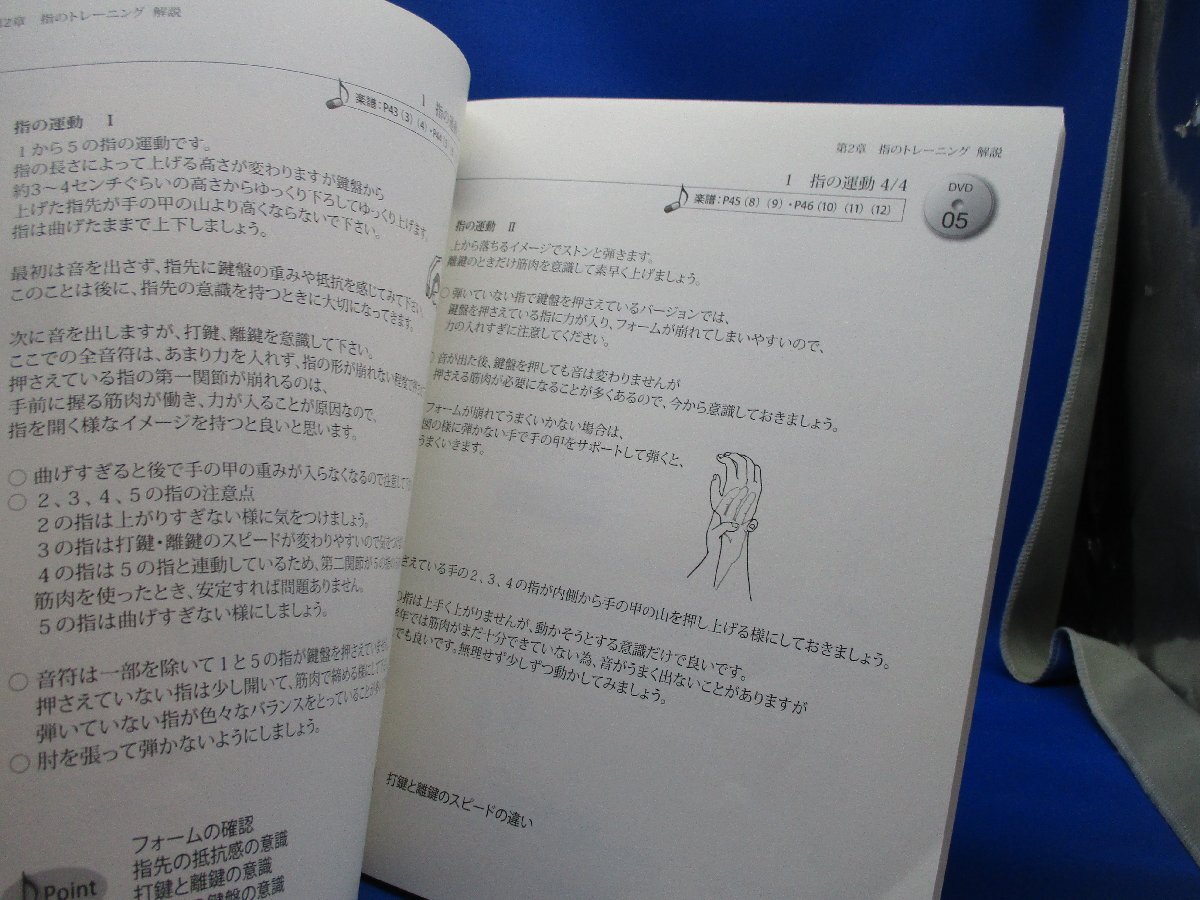 第2章 指のトレーニング 解説
1 指の
楽譜：P43（3）（4）・P44
指の運動 Ⅰ
1から5の指の運動です。
指の長さによって上げる高さが変わりますが鍵盤から
約3～4センチぐらいの高さからゆっくり下ろしてゆっくり上げます。
上げた指先が手の甲の山より高くならないで下さい。
指は曲げたままで上下しましょう。
最初は音を出さず、指先に鍵盤の重みや抵抗を感じてみて下さい。
このことは後に、指先の意識を持つときに大切になってきます。
次に音を出しますが、打鍵、離鍵を意識して下さい。
ここでの全音符は、あまり力を入れず、指の形が崩れない程度で
押さえている指の第一関節が崩れるのは、
手前に握る筋肉が働き、力が入ることが原因なので、
指を開く様なイメージを持つと良いと思います。
○ 曲げすぎると後で手の甲の重みが入らなくなるので注意して
○ 2、3、4、5の指の注意点
2の指は上がりすぎない様に気をつけましょう。
3の指は打鍵・離鍵のスピードが変わりやすいので気をつけ
4の指は5の指と連動しているため、第二関節が5の指の
筋肉を使ったとき、安定すれば問題ありません。
5の指は曲げすぎない様にしましょう。
○ 音符は一部を除いて1と5の指が鍵盤を押さえていますが
押さえていない指は少し開いて、筋肉で締める様にして
弾いていない指が色々なバランスをとっていることが
○ 肘を張って弾かないようにしましょう。
Point
フォームの確認
指先の抵抗感の意識
打鍵と離鍵の意識
鍵盤の意識
第2章 指のトレーニング 解説
1 指の運動 4/4
DVD
05
楽譜：P45（8）（9）・P46（10）（11）（12）
指の運動 Ⅱ
上から落ちるイメージでストンと弾きます。
離鍵のときだけ筋肉を意識して素早く上げましょう。
○ 弾いていない指で鍵盤を押さえているバージョンでは、
鍵盤を押さえている指に力が入り、フォームが崩れてしまいやすいので、
力の入れすぎに注意してください。
○ 音が出た後、鍵盤を押しても音は変わりませんが
押さえる筋肉が必要になることが多くあるので、今から意識しておきましょう。
フォームが崩れてうまくいかない場合は、
図の様に弾かない手で手の甲をサポートして弾くと、
うまくいきます。
さえている手の2、3、4の指が内側から手の甲の山を押し上げる様にしておきましょう。
の指は上手く上がりませんが、動かそうとする意識だけで良いです。
学年では筋肉がまだ十分できていない為、音がうまく出ないことがありますが
でも良いです。無理せず少しずつ動かしてみましょう。
打鍵と離鍵のスピードの違い